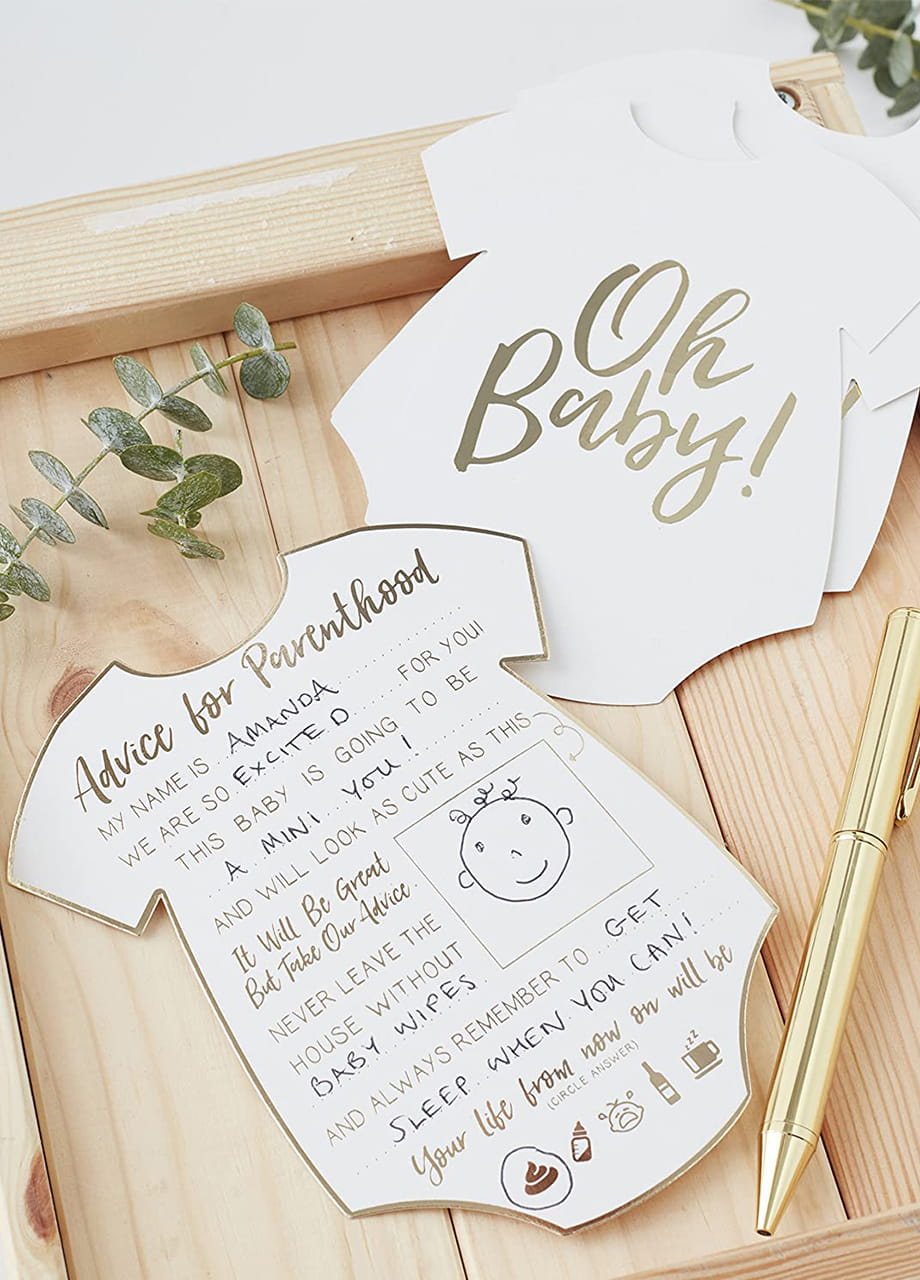 Oh
Baby!
Advice for Parenthood
MY NAME IS AMANDA
WE ARE SO EXCITED FOR YOU!
THIS BABY IS GOING TO BE
A MINI YOU!
AND WILL LOOK AS CUTE AS THIS
It Will Be Great
But Take Our Advice
NEVER LEAVE THE
HOUSE WITHOUT
BABY WIPES
AND ALWAYS REMEMBER TO GET
SLEEP WHEN YOU CAN!
Your life from now on will be
(CIRCLE ANSWER)
zzz